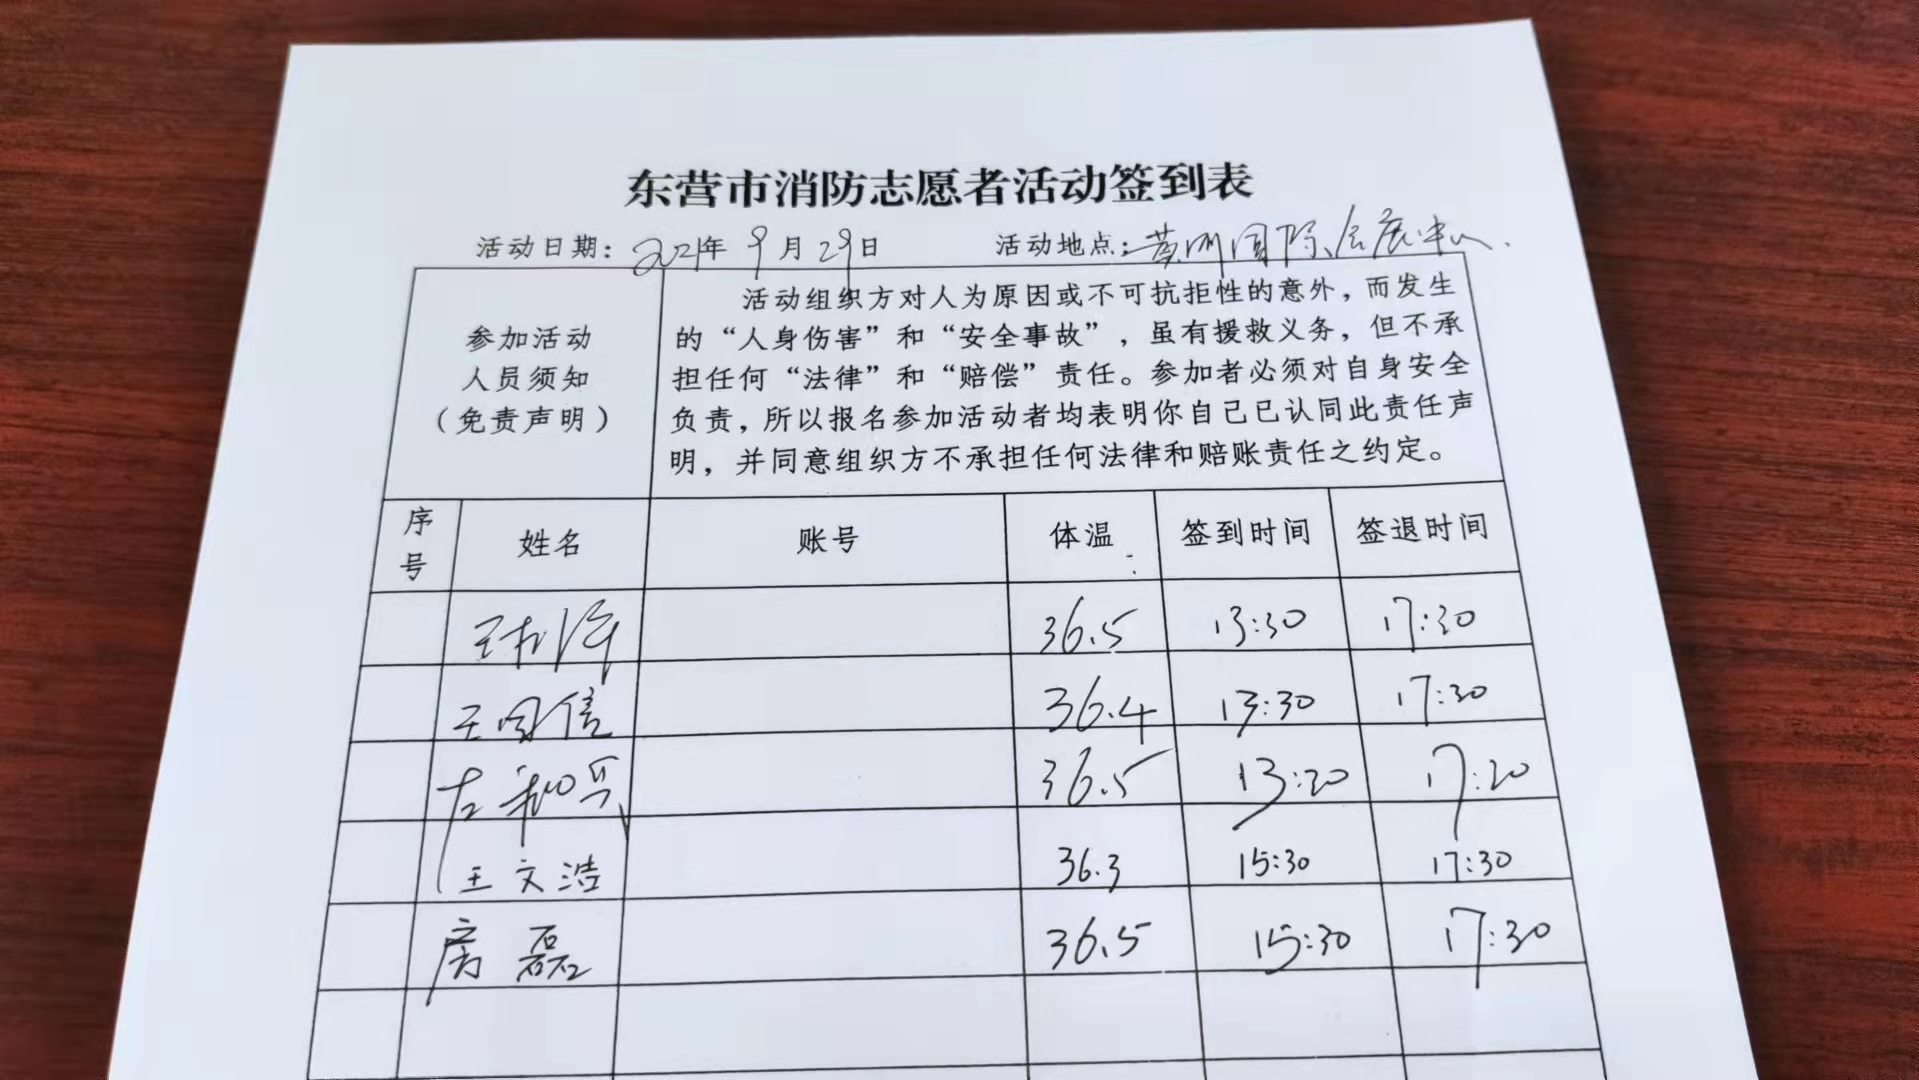 东营市消防志愿者活动签到表
活动日期：2021年 9月29日 活动地点：黄河国际会展中心.
参加活动
人员须知
（免责声明）
活动组织方对人为原因或不可抗拒性的意外，而发生
的“人身伤害”和“安全事故”，虽有援救义务，但不承
担任何“法律”和“赔偿”责任。参加者必须对自身安全
负责，所以报名参加活动者均表明你自己已认同此责任声
明，并同意组织方不承担任何法律和赔账责任之约定。
序号 姓名 账号 体温 签到时间 签退时间
王 36.5 13:30 17:30
王国信 36.4 13:30 17:30
左和兴 36.5 13:20 17:20
王文浩 36.3 15:30 17:30
房磊 36.5 15:30 17:30